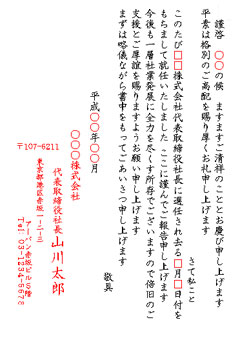 謹啓 〇〇の候 ますますご清祥のこととお慶び申し上げます
平素は格別のご高配を賜り厚くお礼申し上げます
さて私こと
このたび□□株式会社代表取締役社長に選任され去る□月□日付を
もちまして就任いたしました ここに謹んでご報告申し上げます
今後も一層社業発展に全力を尽くす所存でございますので倍旧のご
支援とご厚誼を賜りますようお願い申し上げます
まずは略儀ながら書中をもってごあいさつ申し上げます
敬具
平成〇〇年〇〇月
〇〇〇株式会社
代表取締役社長 山川太郎
〒107-6211
東京都港区赤坂一-二-三
アーバン赤坂ビル5階
Tel: 03-1234-5678